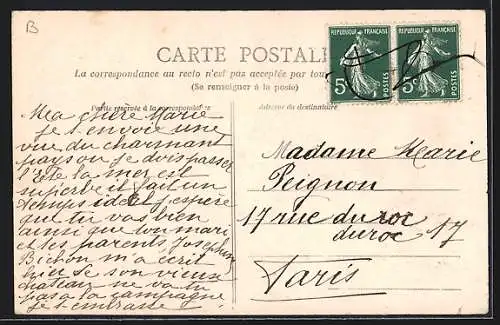 B
CARTE POSTALE
RÉPUBLIQUE FRANÇAISE
5c
POSTES
RÉPUBLIQUE FRANÇAISE
5c
POSTES
La correspondance au recto n'est pas acceptée par tou
(Se renseigner à la poste)
Partie réservée à la correspondance
Adresse du destinataire
Ma chère Marie
je t'envoie une
vue du charmant
pays ou je dois passer
l'Eté la mer est
superbe il fait un
temps idéal j'espère
que tu vas bien
ainsi que ton mari
et tes parents Josephine
Bichon m'a écrit
hier de son vieux
chateau ne va tu
pas a la campagne
je t'embrasse
Madame Marie
Peignon
17 rue du roc
duroc 17
Paris